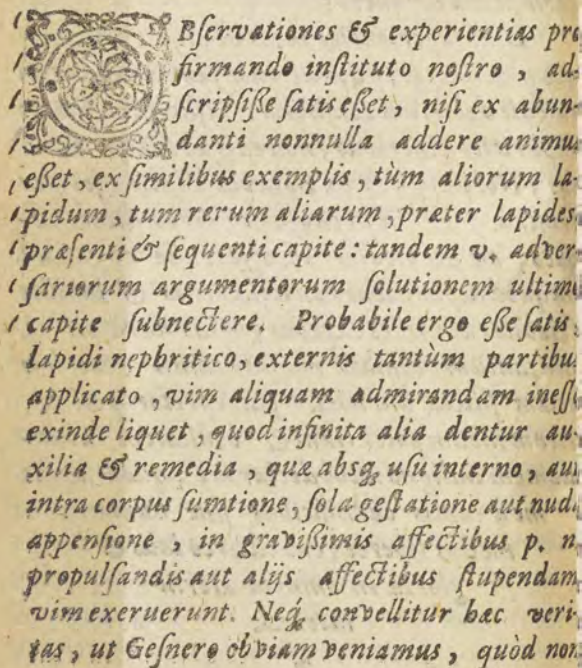 OBservationes & experientias pro
firmando instituto nostro, ad-
scripsisse satis esset, nisi ex abun-
danti nonnulla addere animus
esset, ex similibus exemplis, tùm aliorum la-
pidum, tum rerum aliarum, præter lapides,
præsenti & sequenti capite: tandem v. adver-
sariorum argumentorum solutionem ultimo
capite subnectere. Probabile ergo esse satis,
lapidi nephritico, externis tantùm partibus
applicato, vim aliquam admirandam inesse
exinde liquet, quod infinita alia dentur au-
xilia & remedia, quæ absq; usu interno, aut
intra corpus sumtione, sola gestatione aut nuda
appensione, in gravißimis affectibus p. n.
propulsandis aut alijs affectibus stupendam
vim exeruerunt. Neq; convellitur hæc veri-
tas, ut Gesnero obviam veniamus, quòd non